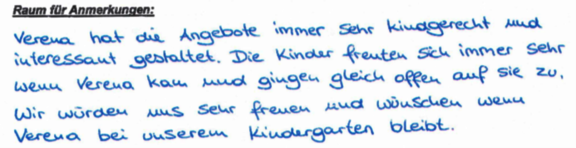 Raum für Anmerkungen:
Verena hat die Angebote immer sehr kindgerecht und
interessant gestaltet. Die Kinder freuten sich immer sehr
wenn Verena kam und gingen gleich offen auf sie zu.
Wir würden uns sehr freuen und wünschen wenn
Verena bei unserem Kindergarten bleibt.